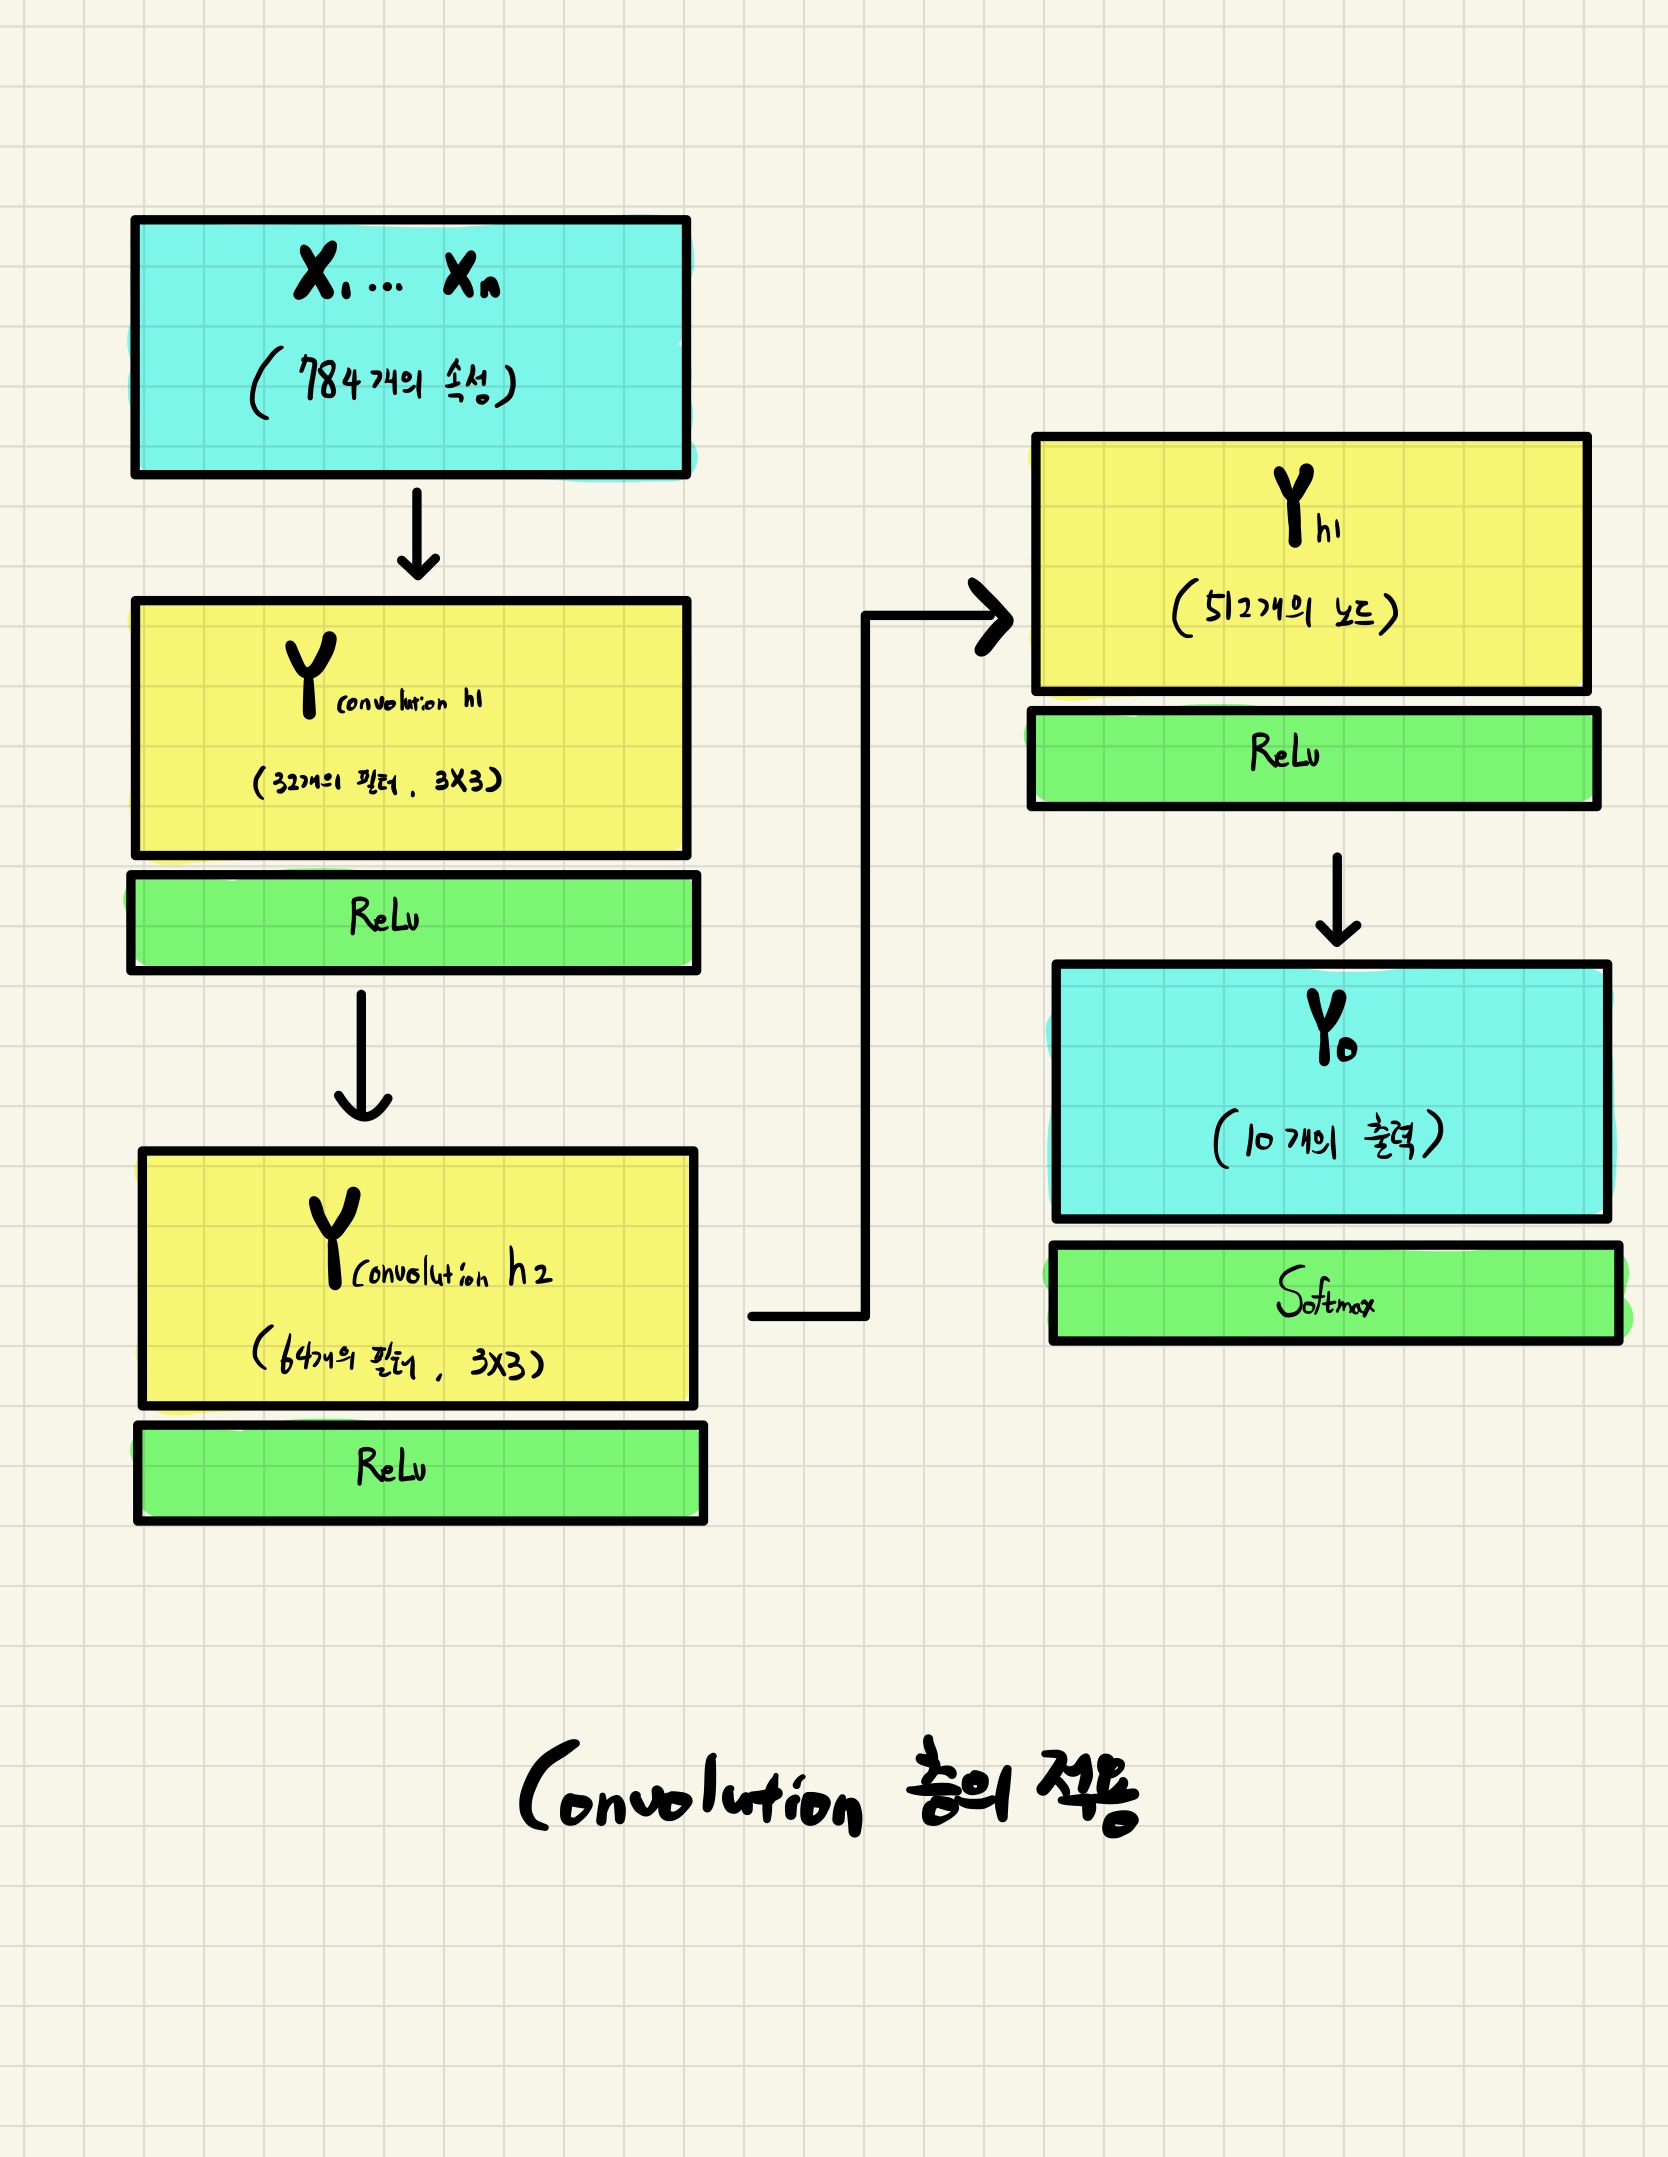 X₁ ... Xn
(784개의 속성)
Y convolution h1
(32개의 필터, 3X3)
ReLu
Y Convolution h2
(64개의 필터, 3X3)
ReLu
Y h1
(512개의 노드)
ReLu
Yo
(10개의 출력)
Softmax
Convolution 층의 적용